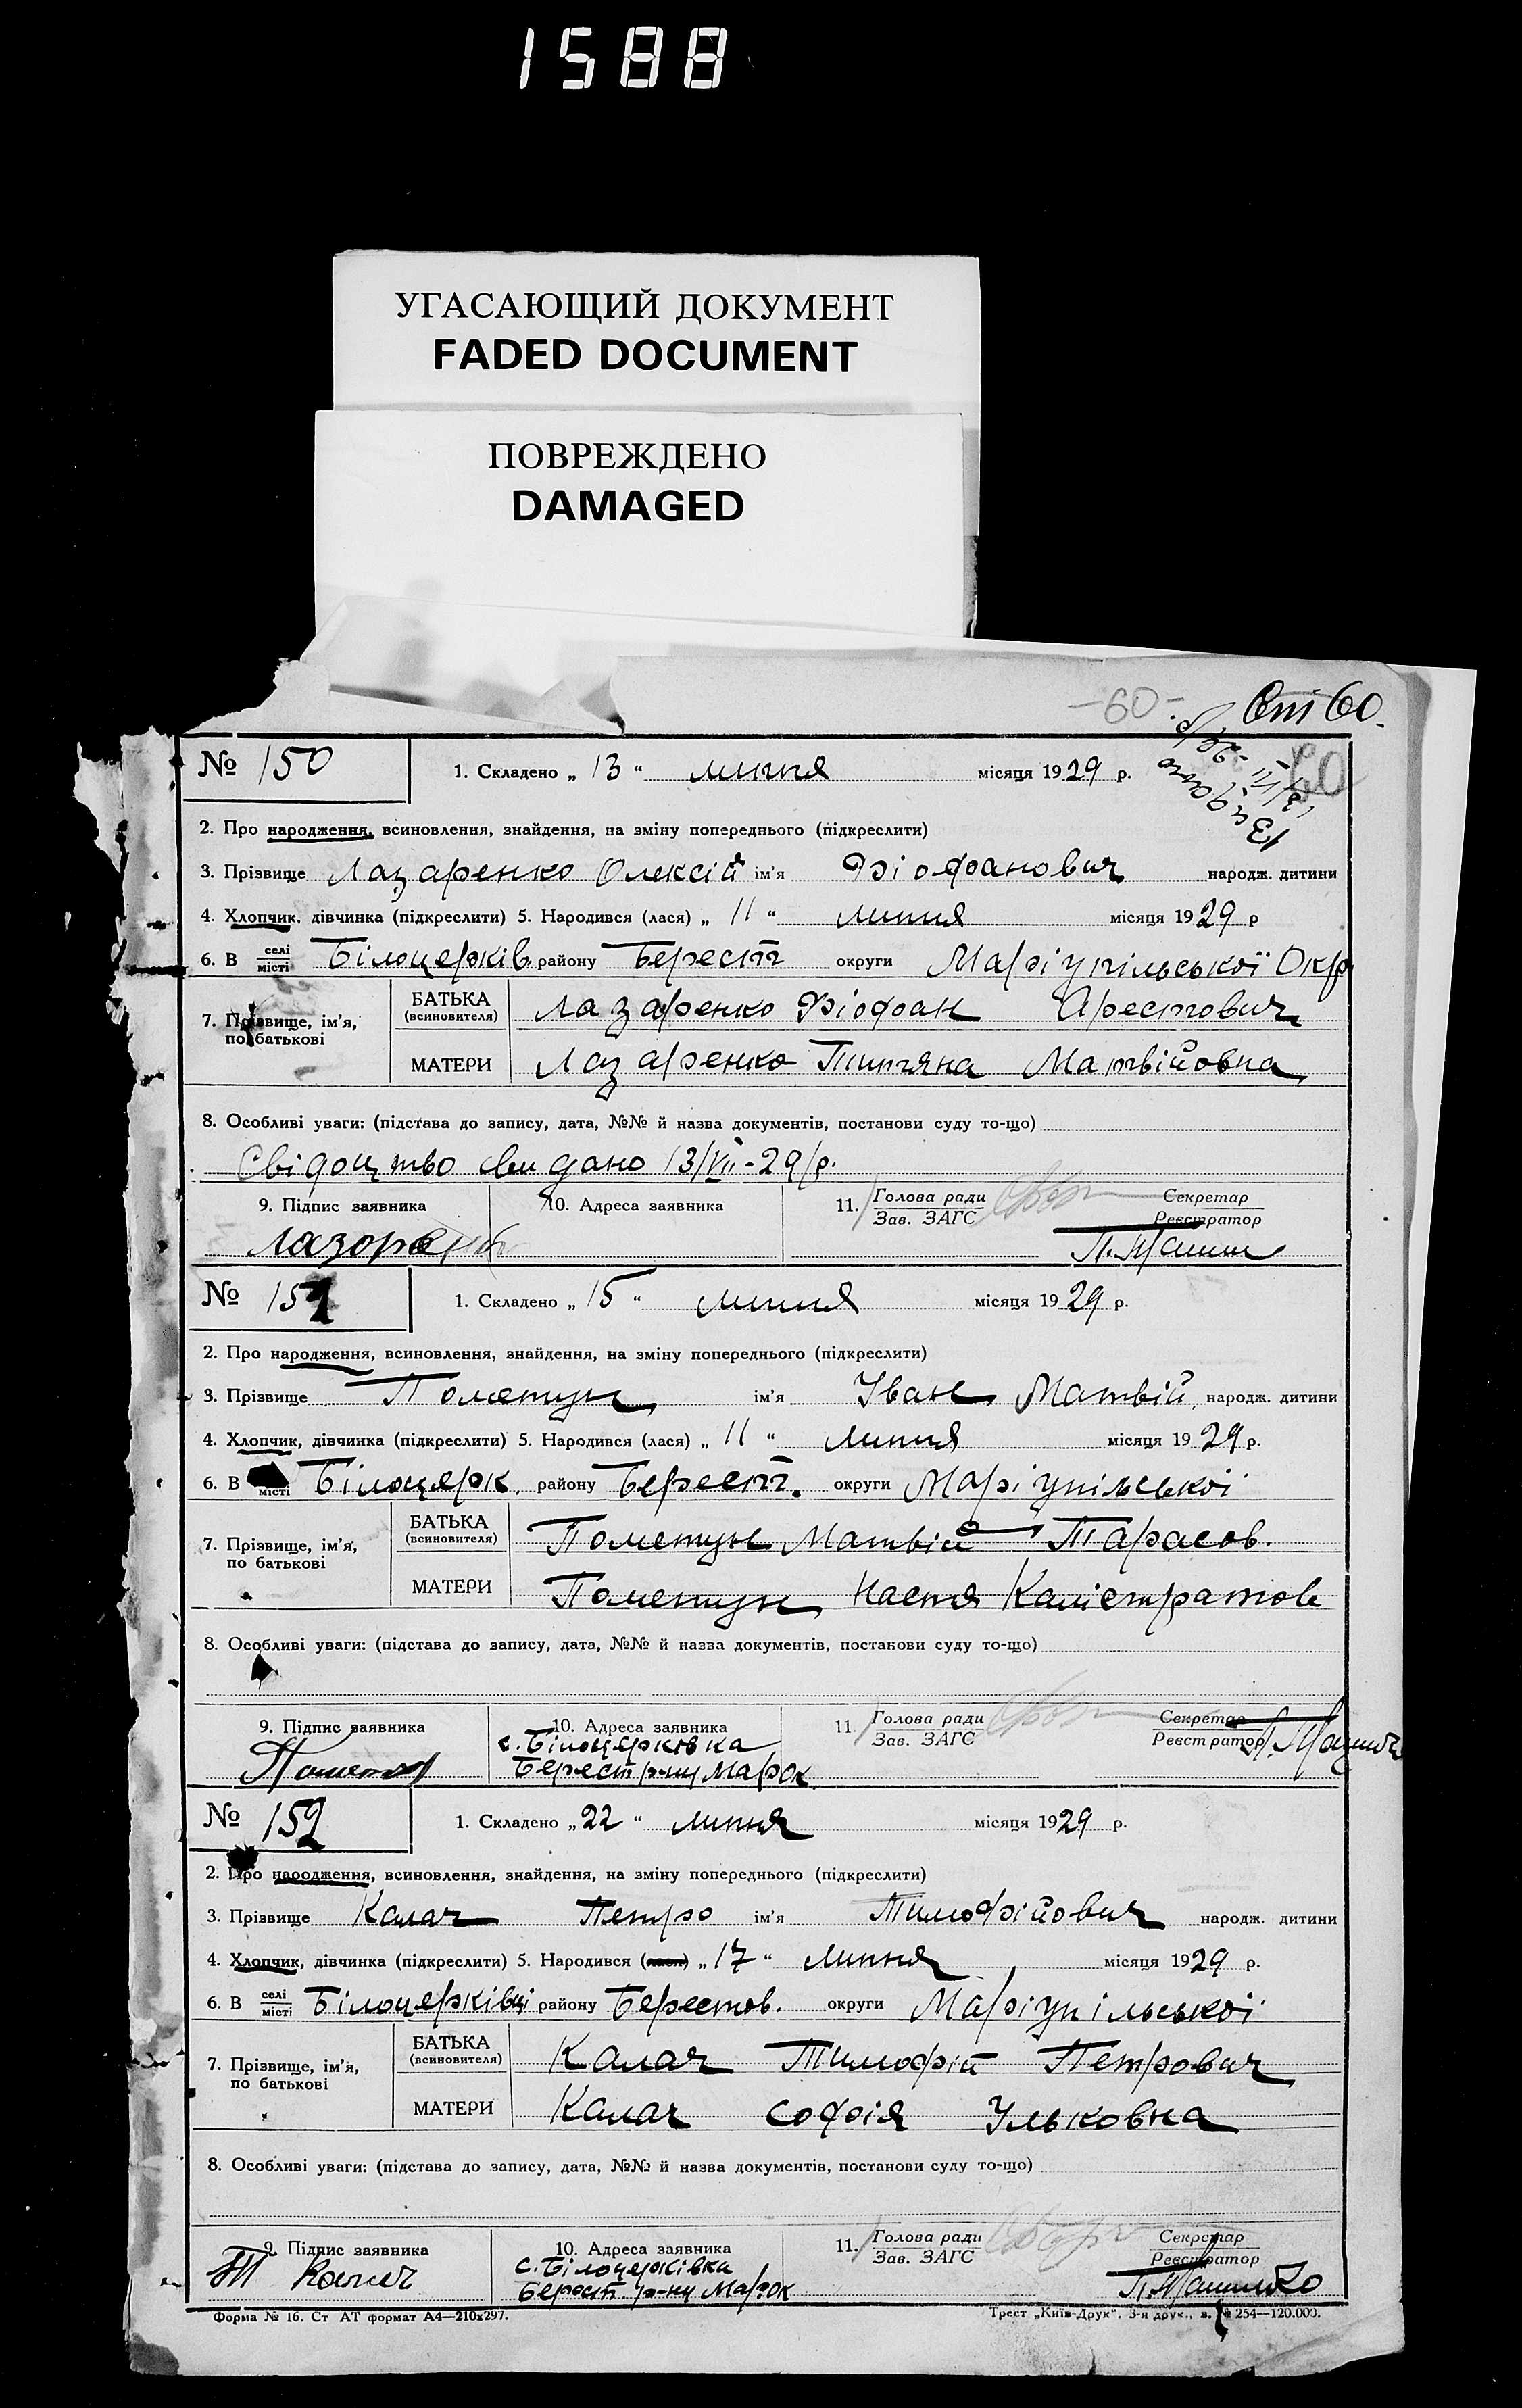 1588
УГАСАЮЩИЙ ДОКУМЕНТ
FADED DOCUMENT
ПОВРЕЖДЕНО
DAMAGED
-60- Ст 60.
60
№ 150 1. Складено „ 13 “ липня місяця 1929 р.
2. Про народження, всиновлення, знайдення, на зміну попереднього (підкреслити)
3. Прізвище Лазаренко Олексій ім’я Фіофанович народж. дитини
4. Хлопчик, дівчинка (підкреслити) 5. Народився (лася) „ 11 “ липня місяця 1929 р
6. В селі місті Білоцерків. району Берест округи Маріупільської Окр
7. Прізвище, ім’я, по батькові
БАТЬКА (всиновителя) Лазаренко Фіофан Арестович
МАТЕРИ Лазаренко Титяна Матвійовна
8. Особливі уваги: (підстава до запису, дата, №№ й назва документів, постанови суду то-що)
Свідоцтво видано 13/VII-29/р.
9. Підпис заявника 10. Адреса заявника 11. Голова ради Зав. ЗАГС Секретар Реєстратор
Лазорен
№ 151 1. Складено „ 15 “ липня місяця 1929 р.
2. Про народження, всиновлення, знайдення, на зміну попереднього (підкреслити)
3. Прізвище Пометун ім’я Іван Матвій. народж. дитини
4. Хлопчик, дівчинка (підкреслити) 5. Народився (лася) „ 11 “ липня місяця 1929 р.
6. В місті Білоцерк. району Берест. округи Маріупільської
7. Прізвище, ім’я, по батькові
БАТЬКА (всиновителя) Пометун Матвій Тарасов.
МАТЕРИ Пометун Настя Калістратов
8. Особливі уваги: (підстава до запису, дата, №№ й назва документів, постанови суду то-що)
9. Підпис заявника 10. Адреса заявника 11. Голова ради Зав. ЗАГС Секретар Реєстратор
с. Білоцерковка
Берест р-ну Мар ок.
№ 152 1. Складено „ 22 “ липня місяця 1929 р.
2. Про народження, всиновлення, знайдення, на зміну попереднього (підкреслити)
3. Прізвище Калач Петро ім’я Тимофійович народж. дитини
4. Хлопчик, дівчинка (підкреслити) 5. Народився (лася) „ 17 “ липня місяця 1929 р.
6. В селі місті Білоцерківці району Берестов. округи Маріупільської
7. Прізвище, ім’я, по батькові
БАТЬКА (всиновителя) Калач Тимофій Петрович
МАТЕРИ Калач Софія Ульковна
8. Особливі уваги: (підстава до запису, дата, №№ й назва документів, постанови суду то-що)
9. Підпис заявника 10. Адреса заявника 11. Голова ради Зав. ЗАГС Секретар Реєстратор
Т Калач с. Білоцерківка
Берест. р-ну Мар ок
Форма № 16. Ст АТ формат А4—210x297. Трест „Київ-Друк“. 3-я друк., з. № 254—120.000.